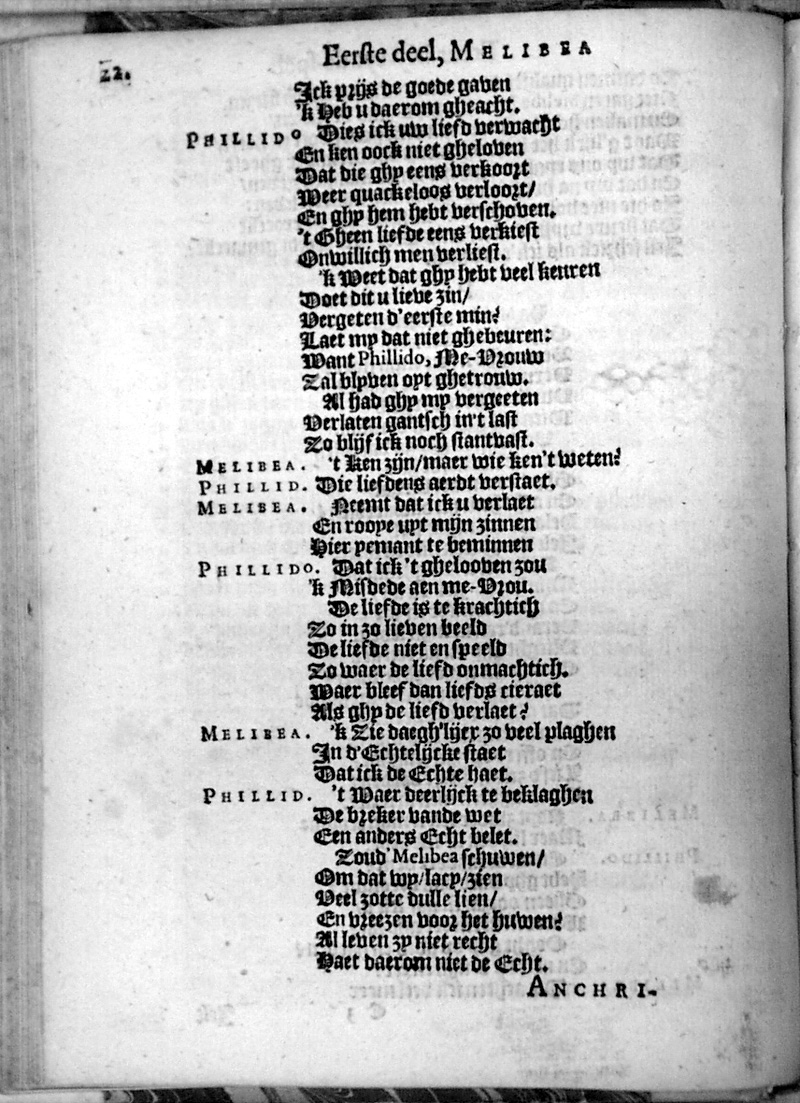 22.
Eerste deel, MELIBEA
Ick prijs de goede gaven
'k Heb u daerom gheacht.
PHILLIDO Dies ick uw liefd verwacht
En ken oock niet gheloven
Dat die ghy eens verkoort
Weer quackeloos verloort/
En ghy hem hebt verschoven.
't Gheen liefde eens verkiest
Onwillich men verliest.
'k Weet dat ghy hebt veel keuren
Doet dit u lieve zin/
Vergeten d'eerste min?
Laet my dat niet ghebeuren:
Want Phillido, Me-Vrouw
Zal blyven opt ghetrouw.
Al had ghy my vergeeten
Verlaten gantsch in't last
Zo blijf ick noch stantvast.
MELIBEA. 't Ken zijn/maer wie ken't weten?
PHILLID. Die liefdens aerdt verstaet.
MELIBEA. Neemt dat ick u verlaet
En roope uyt mijn zinnen
Hier yemant te beminnen
PHILLIDO. Dat ick 't ghelooven zou
'k Misdede aen me-Vrou.
De liefde is te krachtich
Zo in zo lieven beeld
De liefde niet en speeld
Zo waer de liefd onmachtich.
Waer bleef dan liefds cieraet
Als ghy de liefd verlaet?
MELIBEA. 'k Zie daegh'lijcx zo veel plaghen
In d'Echtelijcke staet
Dat ick de Echte haet.
PHILLID. 't Waer deerlijck te beklaghen
De breker vande wet
Een anders Echt belet.
Zoud' Melibea schuwen/
Om dat wy/lacy/zien
Veel zotte dulle lien/
En vreezen voor het huwen?
Al leven zy niet recht
Haet daerom niet de Echt.
ANCHRI-